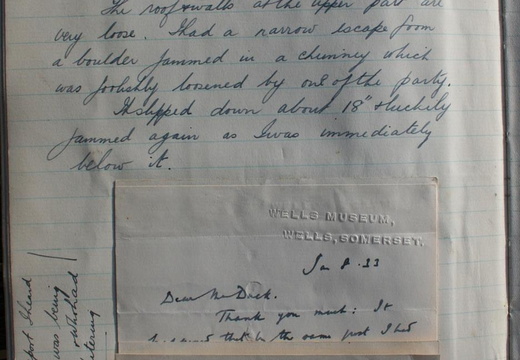 The roof & walls at the upper part are
very loose. I had a narrow escape from
a boulder jammed in a chimney which
was foolishly loosened by one of the party.
It slipped down about 18" & luckily
jammed again as I was immediately
below it.
WELLS MUSEUM,
WELLS, SOMERSET.
Jan 8. 33
Dear Mr Duck.
Thank you much: It
that in the same post I had
but I heard
was being
entering